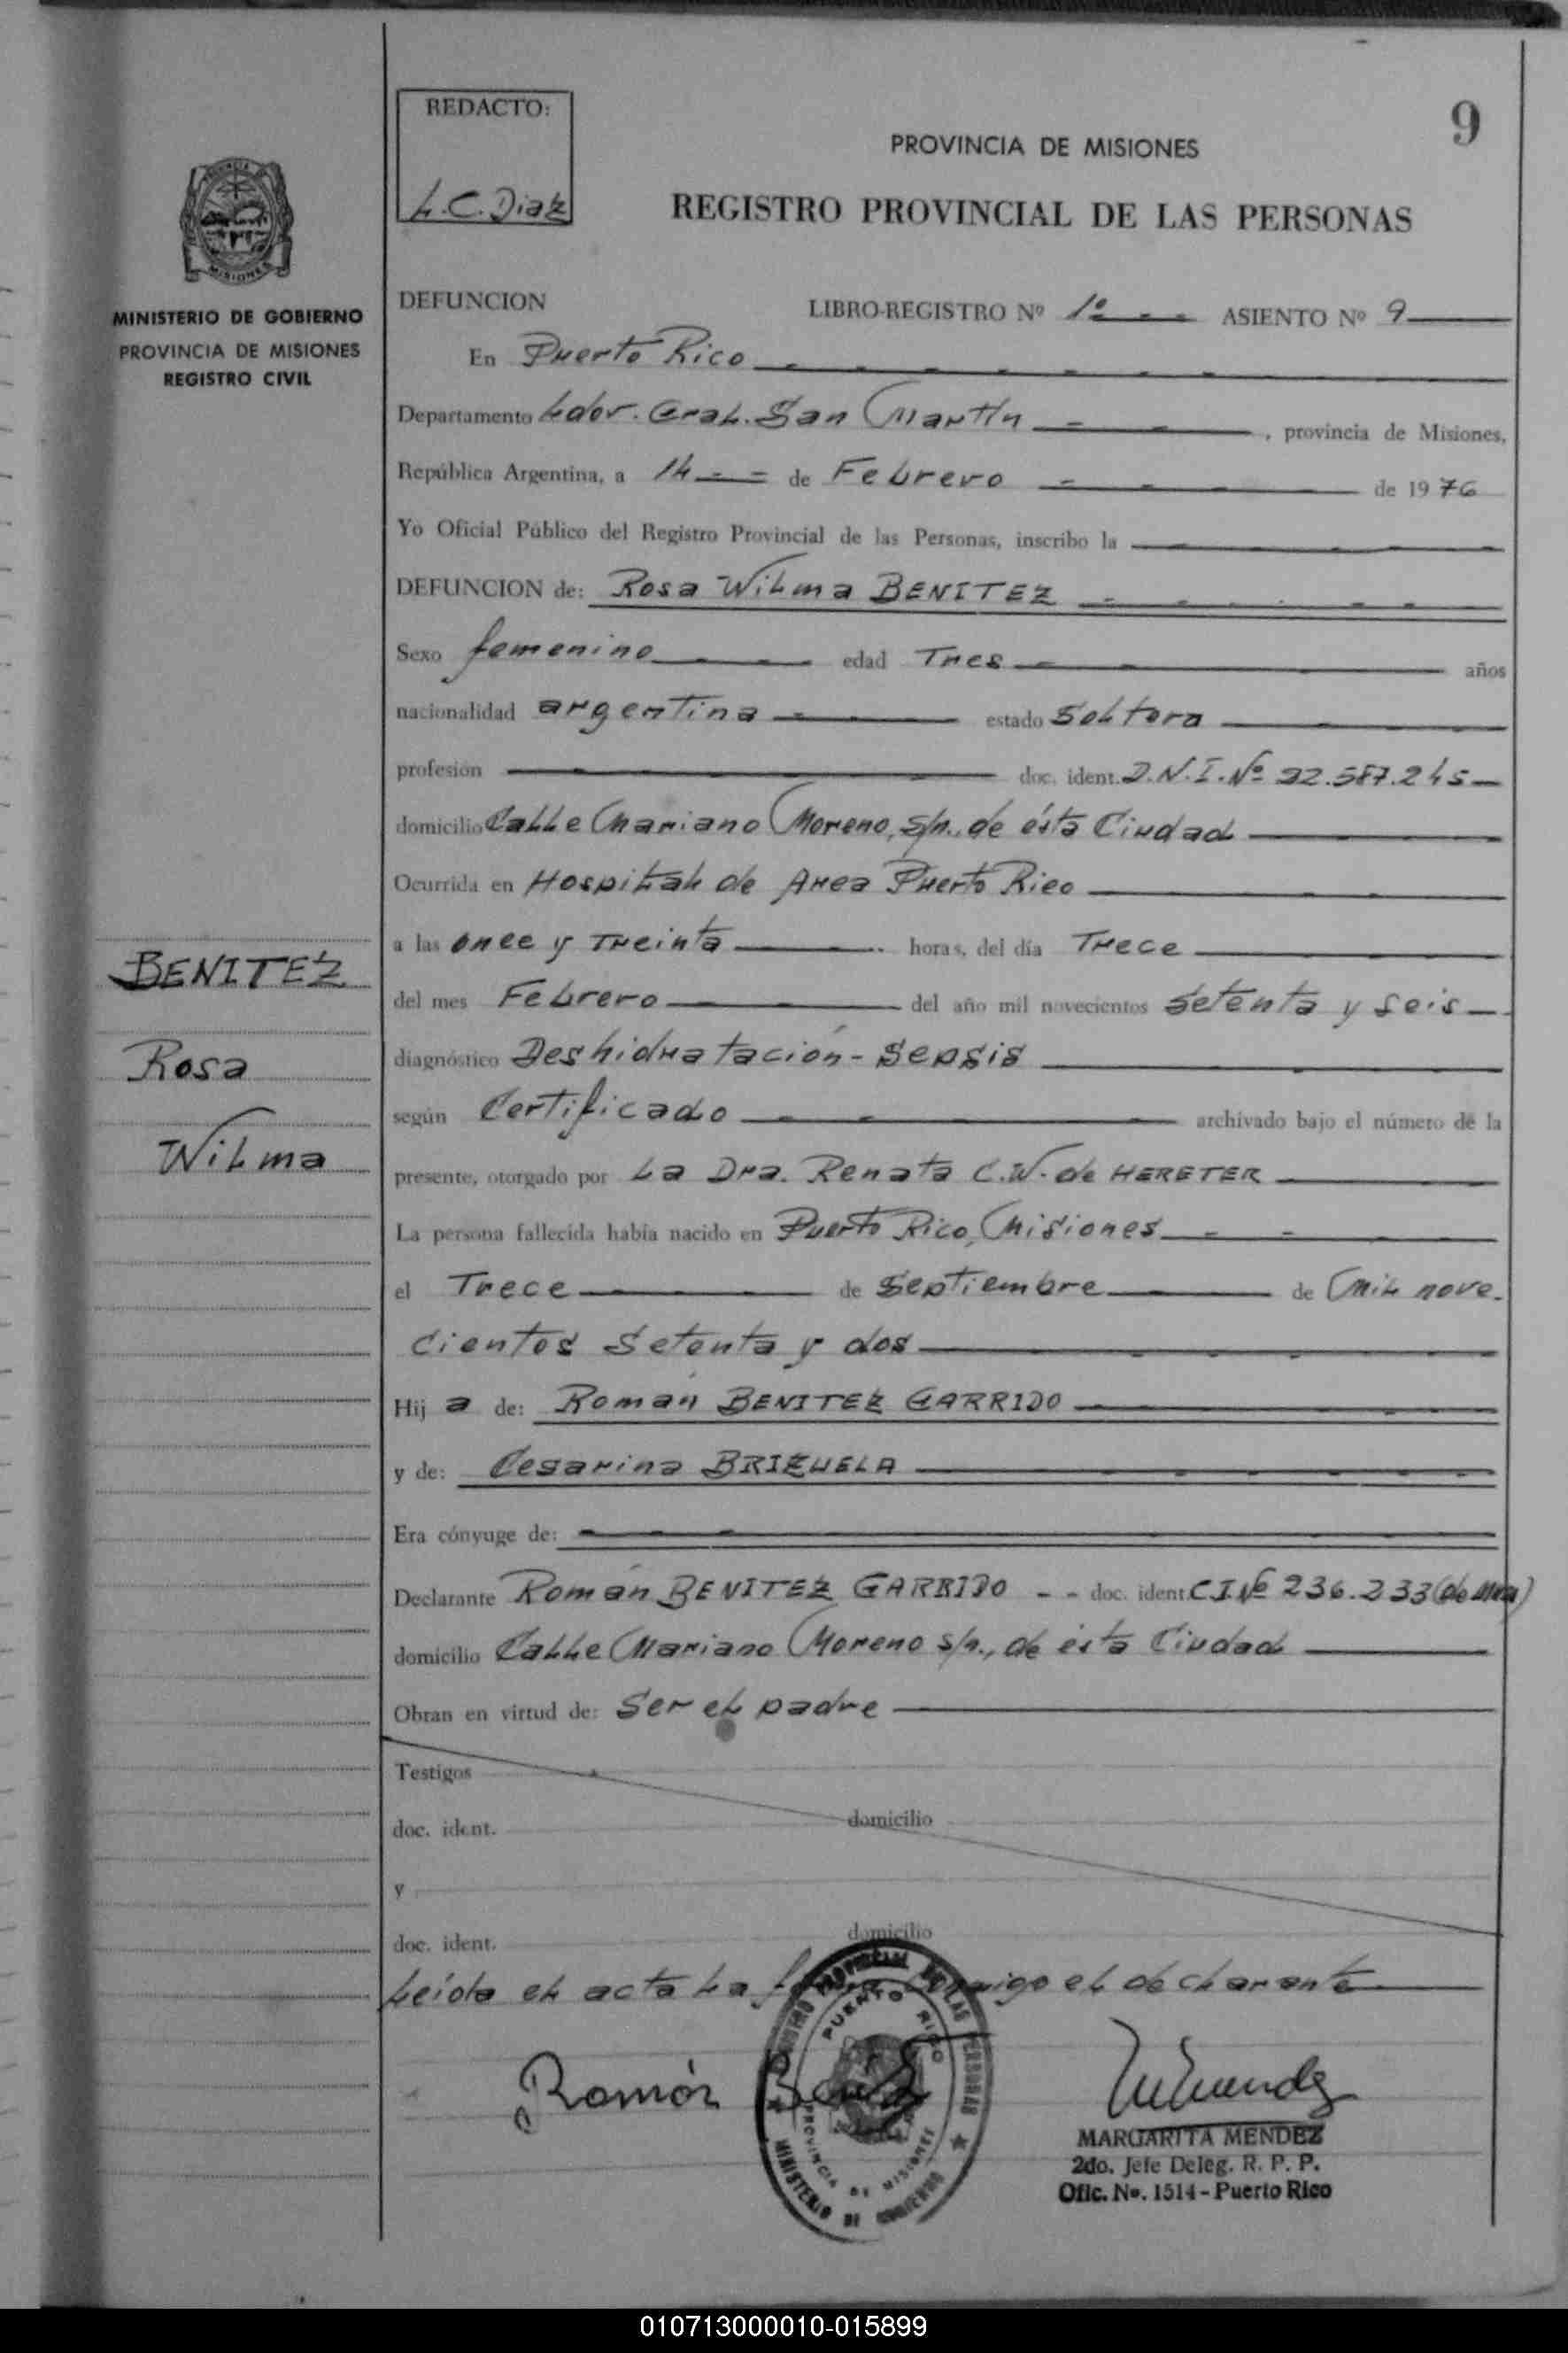 REDACTO:
L.C. Diaz
9
PROVINCIA DE MISIONES
REGISTRO PROVINCIAL DE LAS PERSONAS
PROVINCIA DE
MISIONES
MINISTERIO DE GOBIERNO
PROVINCIA DE MISIONES
REGISTRO CIVIL
DEFUNCION LIBRO-REGISTRO Nº 1º ASIENTO Nº 9
En Puerto Rico
Departamento Ldor. Gral. San Martín, provincia de Misiones,
República Argentina, a 14 de Febrero de 1976
Yo Oficial Público del Registro Provincial de las Personas, inscribo la
DEFUNCION de: Rosa Wilma BENITEZ
Sexo femenino edad Tres años
nacionalidad argentina estado Soltera
profesión doc. ident. D.N.I. Nº 22.587.245
domicilio Calle Mariano Moreno, s/n., de ésta Ciudad
Ocurrida en Hospital de Area Puerto Rico
a las once y Treinta horas, del día Trece
del mes Febrero del año mil novecientos setenta y seis
diagnóstico Deshidratación - Sepsis
según Certificado archivado bajo el número de la
presente, otorgado por La Dra. Renata C.W. de HERETER
La persona fallecida había nacido en Puerto Rico, Misiones
el Trece de Septiembre de Mil nove-
cientos Setenta y dos
Hij a de: Román BENITEZ GARRIDO
y de: Cesarina BRIZUELA
Era cónyuge de:
Declarante Román BENITEZ GARRIDO doc. ident. C.I. Nº 236.233 (de Mnes)
domicilio Calle Mariano Moreno s/n., de ésta Ciudad
Obran en virtud de: Ser el padre
Testigos
doc. ident. domicilio
y
doc. ident. domicilio
Leída el acta la firma conmigo el declarante
BENITEZ
Rosa
Wilma
Ramón Benitez
REGISTRO PROVINCIAL DE LAS PERSONAS
PUERTO RICO
PROVINCIA DE MISIONES
MINISTERIO DE GOBIERNO
MMendez
MARGARITA MENDEZ
2do. Jefe Deleg. R. P. P.
Ofic. No. 1514 - Puerto Rico
010713000010-015899